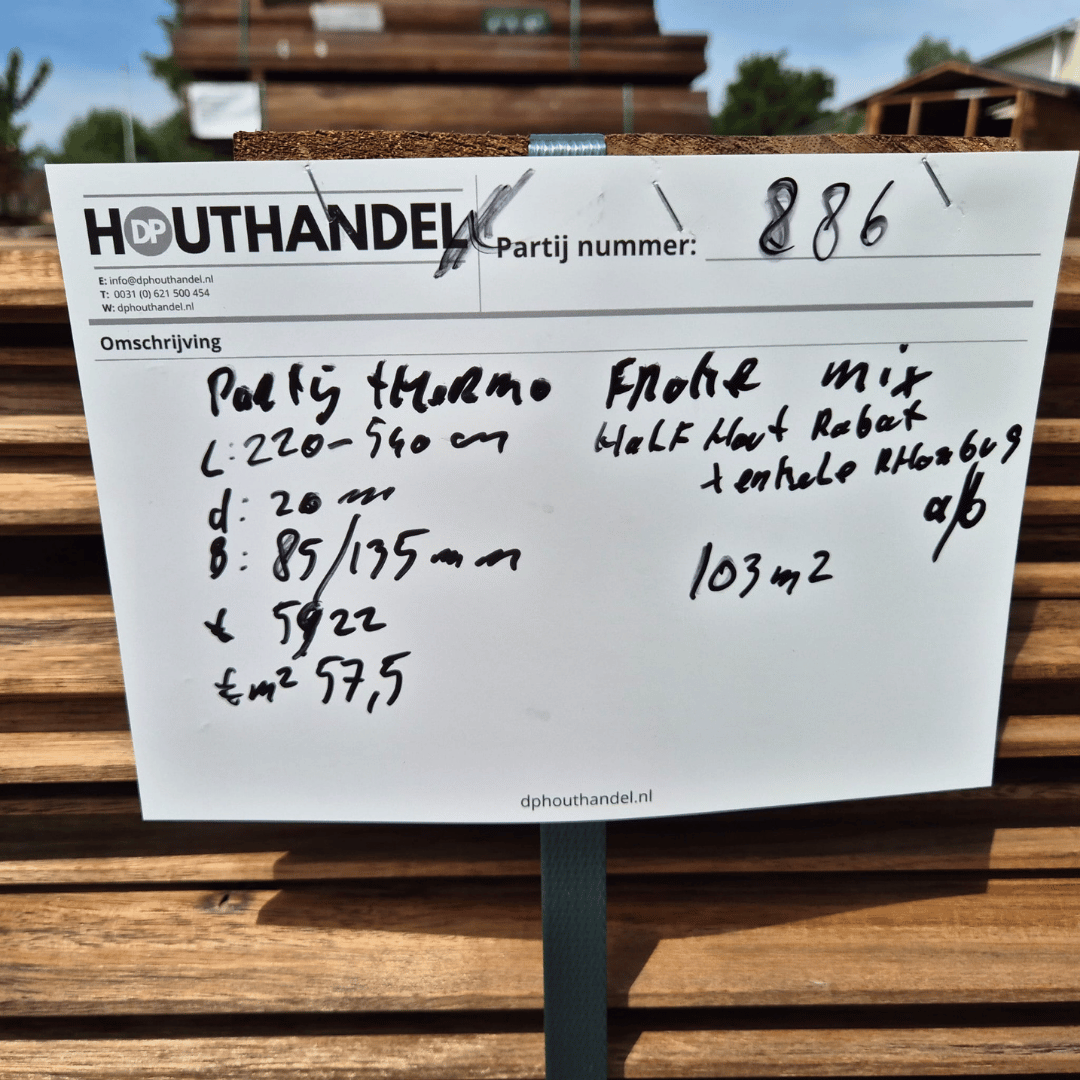 HOUTHANDEL
DP
E: info@dphouthandel.nl
T: 0031 (0) 621 500 454
W: dphouthandel.nl
Partij nummer: 886
Omschrijving
Partij thermo Frake mix
L: 220-540 cm Half Hout Rabat
+ enkele Rhombus
d: 20 mm a/b
B: 85/135 mm 103 m2
€ 5922
€ m² 57,5
dphouthandel.nl